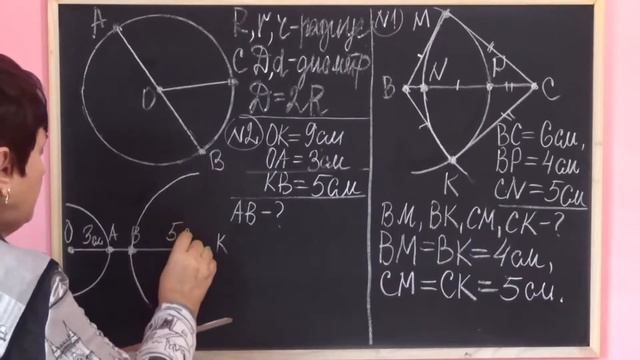 A
O
B
C
R, r, r - радиус
D, d - диаметр
D = 2R
№2. OK = 9см
OA = 3см
KB = 5см
AB - ?
O 3см A B 5 K
№1)
M
B N P C
K
BC = 6см,
BP = 4см
CN = 5см
BM, BK, CM, CK - ?
BM = BK = 4см,
CM = CK = 5см.